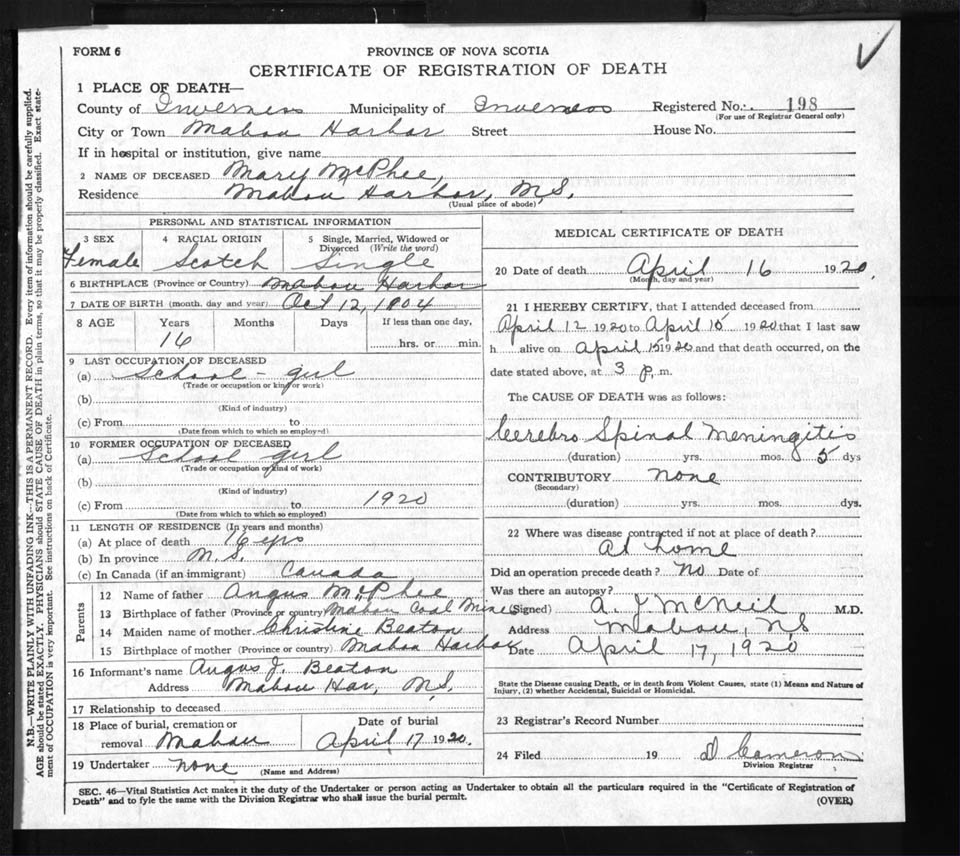 FORM 6
PROVINCE OF NOVA SCOTIA
CERTIFICATE OF REGISTRATION OF DEATH
1 PLACE OF DEATH—
County of Inverness Municipality of Inverness Registered No. 198
(For use of Registrar General only)
City or Town Mabou Harbor Street House No.
If in hospital or institution, give name
2 NAME OF DECEASED Mary McPhee,
Residence Mabou Harbor, N.S.
(Usual place of abode)
PERSONAL AND STATISTICAL INFORMATION
3 SEX 4 RACIAL ORIGIN 5 Single, Married, Widowed or Divorced (Write the word)
Female Scotch Single
6 BIRTHPLACE (Province or Country) Mabou Harbor
7 DATE OF BIRTH (month, day and year) Oct 12, 1904
8 AGE Years Months Days If less than one day,
16 hrs. or min.
9 LAST OCCUPATION OF DECEASED
(a) School-girl
(Trade or occupation or kind or work)
(b)
(Kind of industry)
(c) From to
(Date from which to which so employed)
10 FORMER OCCUPATION OF DECEASED
(a) School girl
(Trade or occupation or kind of work)
(b)
(Kind of industry)
(c) From to 1920
(Date from which to which so employed)
11 LENGTH OF RESIDENCE (In years and months)
(a) At place of death 16 yrs
(b) In province N.S.
(c) In Canada (if an immigrant) Canada
Parents
12 Name of father Angus McPhee
13 Birthplace of father (Province or country) Mabou Coal Mines
14 Maiden name of mother Christine Beaton
15 Birthplace of mother (Province or country) Mabou Harbor
16 Informant's name Angus J. Beaton
Address Mabou Har, N.S.
17 Relationship to deceased
18 Place of burial, cremation or removal Mabou
Date of burial April 17 1920.
19 Undertaker none
(Name and Address)
MEDICAL CERTIFICATE OF DEATH
20 Date of death April 16 1920.
(Month, day and year)
21 I HEREBY CERTIFY, that I attended deceased from
April 12 1920 to April 15 1920 that I last saw
h alive on April 15 1920 and that death occurred, on the
date stated above, at 3 p. m.
The CAUSE OF DEATH was as follows:
Cerebro Spinal Meningitis
(duration) yrs. mos. 5 dys
CONTRIBUTORY none
(Secondary)
(duration) yrs. mos. dys.
22 Where was disease contracted if not at place of death?
At home
Did an operation precede death? No Date of
Was there an autopsy?
(Signed) A. J McNeil M.D.
Address Mabou, NS
Date April 17, 1920
State the Disease causing Death, or in death from Violent Causes, state (1) Means and Nature of
Injury, (2) whether Accidental, Suicidal or Homicidal.
23 Registrar's Record Number
24 Filed 19 D Cameron
Division Registrar
SEC. 46—Vital Statistics Act makes it the duty of the Undertaker or person acting as Undertaker to obtain all the particulars required in the "Certificate of Registration of
Death" and to fyle the same with the Division Registrar who shall issue the burial permit.
(OVER)
N.B.—WRITE PLAINLY WITH UNFADING INK—THIS IS A PERMANENT RECORD. Every item of information should be carefully supplied.
AGE should be stated EXACTLY. PHYSICIANS should STATE CAUSE OF DEATH in plain terms, so that it may be properly classified. Exact state-
ment of OCCUPATION is very important. See instructions on back of Certificate.